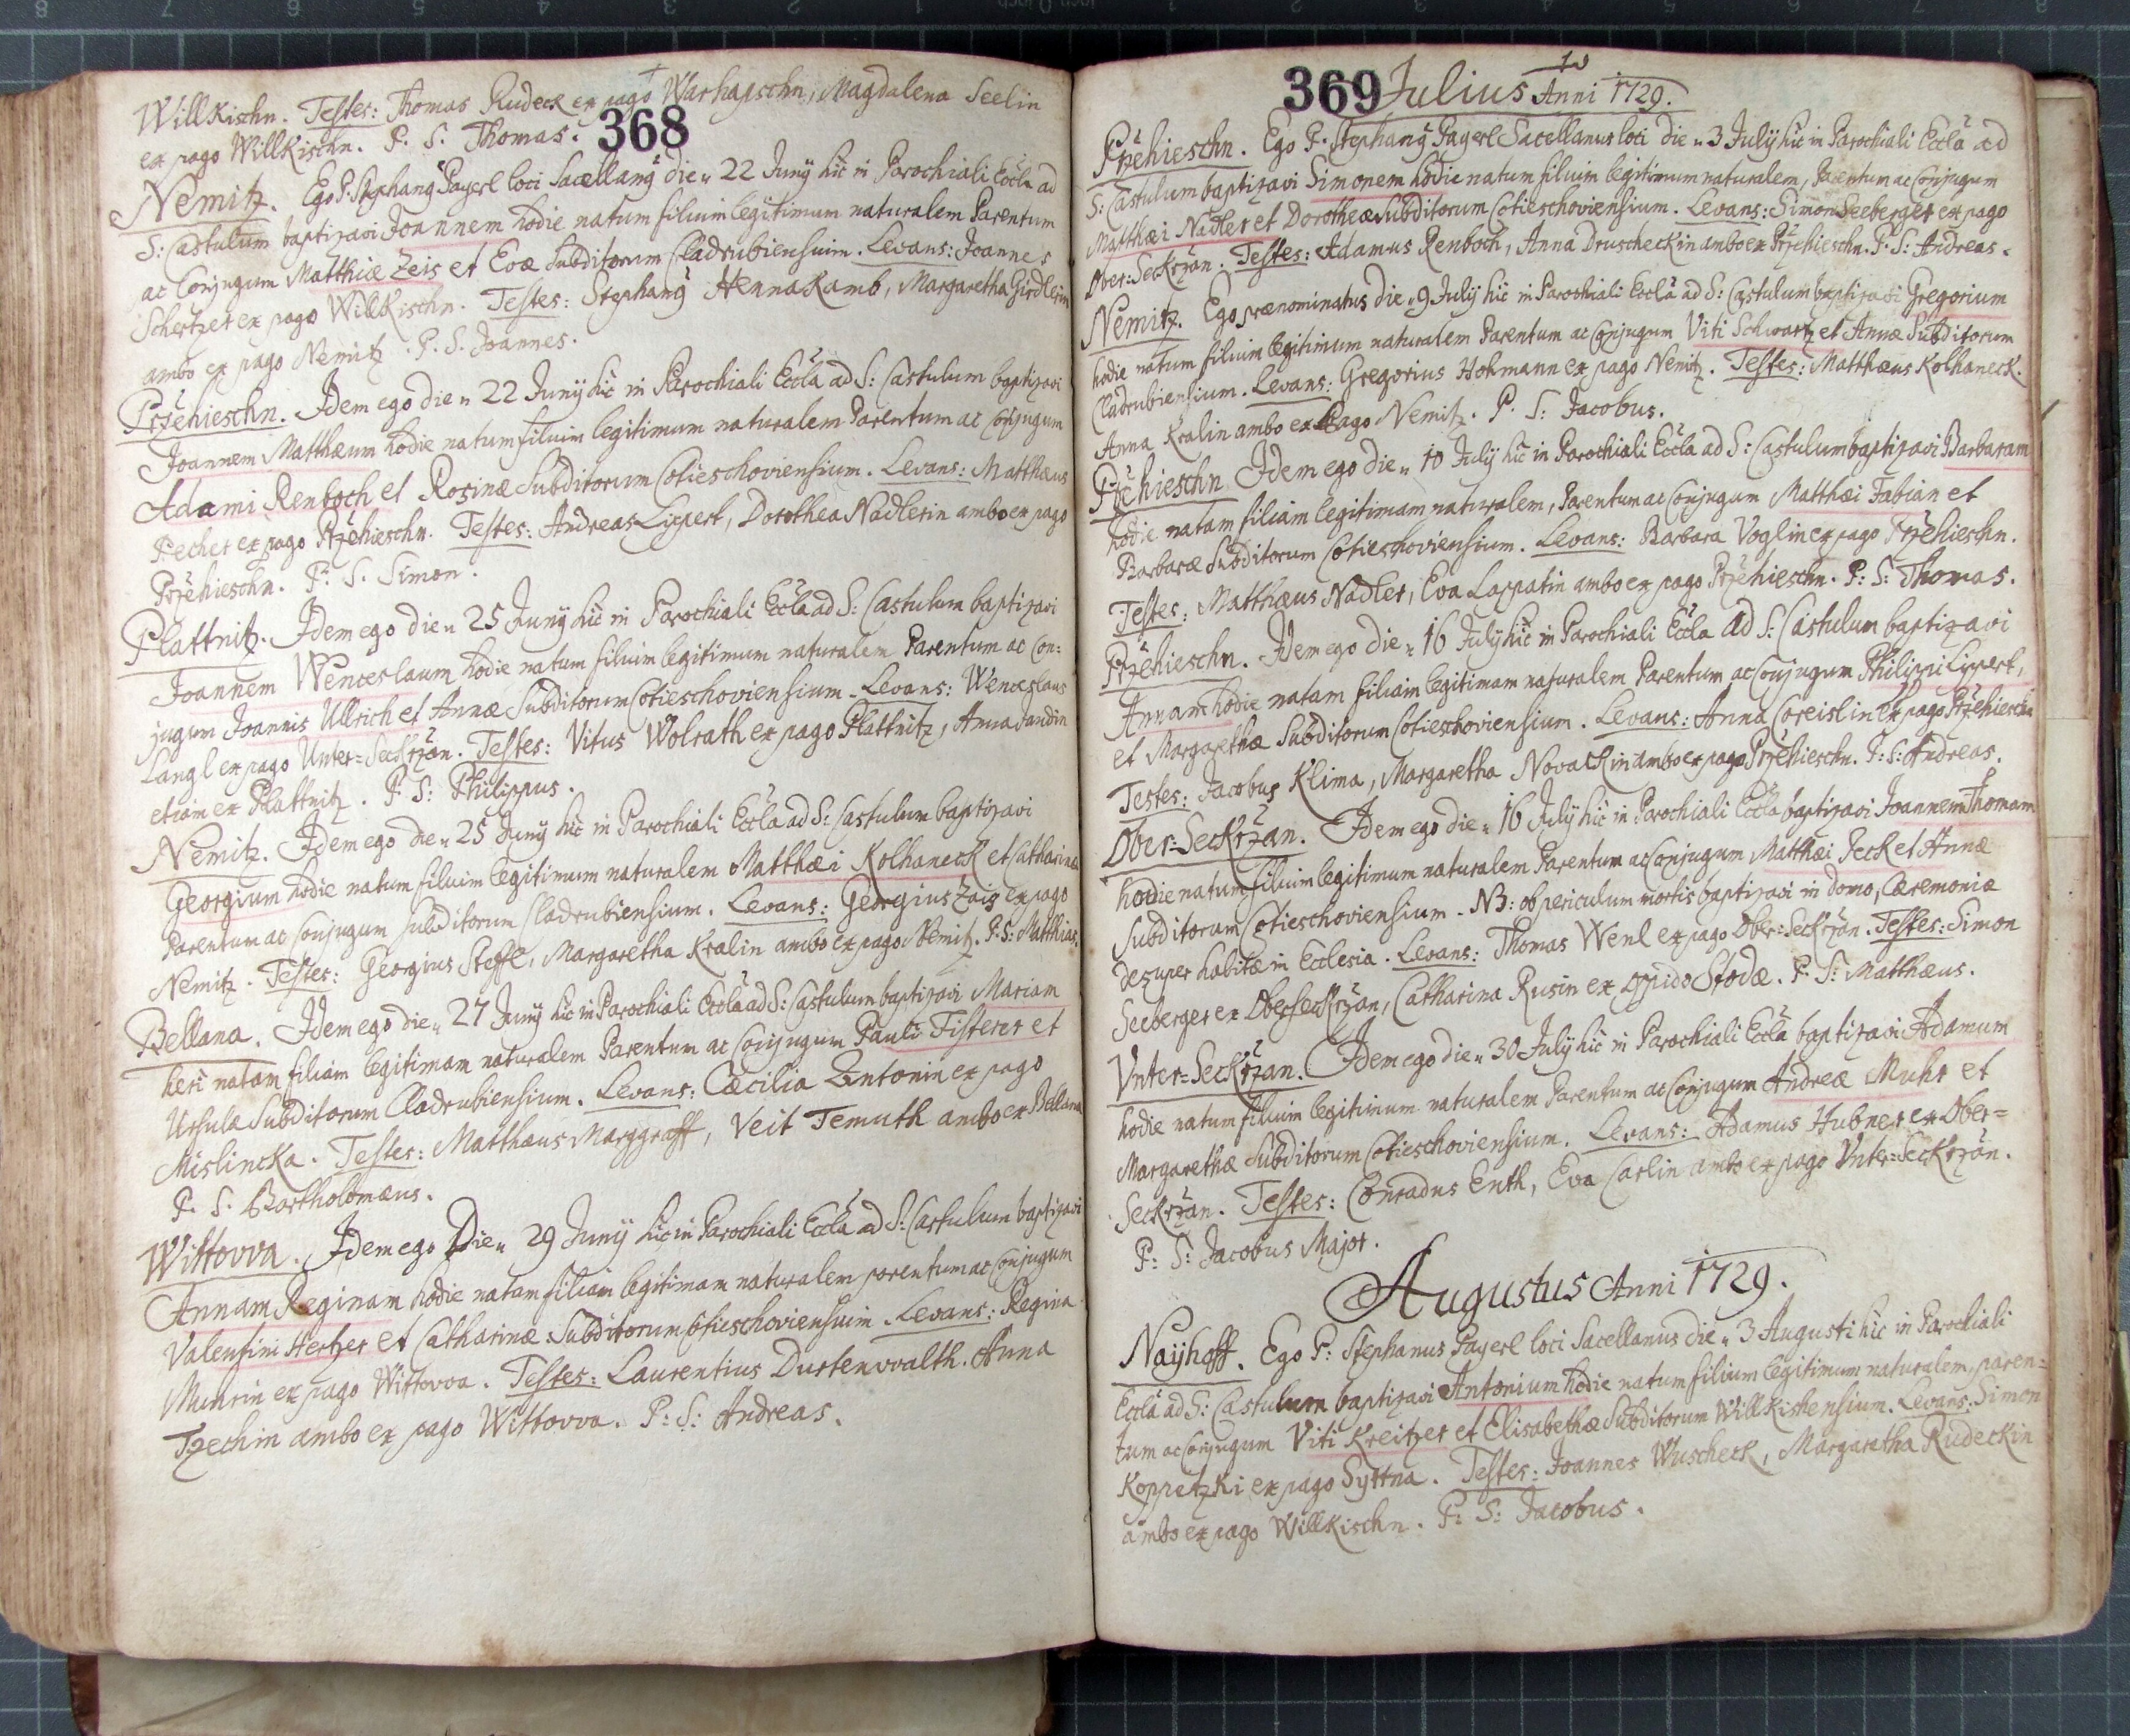 Willkischn. Testes: Thomas Rudeck ex pago Warhapschn, Magdalena Seelin
ex pago Willkischn. P. S. Thomas.
368
Nemitz. Ego P. Stephang Payerl loci Sacellang die " 22 Junÿ hic in Parochiali Eccla ad
S: Castulum baptizavi Joannem hodie natum filium legitimum naturalem Parentum
ac Conjugum Matthiæ Zeis et Evæ Subditorum Cladrubiensium. Levans: Joannes
Schertzer ex pago Willkischn. Testes: Stephang Hennakamb, Margaretha Girdlgin
ambo ex pago Nemitz. P. S. Joannes.
Przehieschn. Idem ego die " 22 Junÿ hic in Parochiali Eccla ad S: Castulum baptizavi
Joannem Matthæum hodie natum filium legitimum naturalem Parentum ac Conjugum
Adami Renboch et Rosinæ Subditorum Cotieschoviensium. Levans: Matthæus
Pecher ex pago Przehieschn. Testes: Andreas Lippert, Dorothea Nadlerin ambo ex pago
Przehieschn. P. S. Simon.
Plattnitz. Idem ego die " 25 Junÿ hic in Parochiali Eccla ad S: Castulum baptizavi
Joannem Wenceslaum hodie natum filium legitimum naturalem Parentum ac Con:
jugum Joannis Ullrich et Annæ Subditorum Cotieschoviensium. Levans: Wenceslaus
Langl ex pago Unter=Seckrzan. Testes: Vitus Wolrath ex pago Plattnitz, Anna Jandin
etiam ex Plattnitz. P. S: Philippus.
Nemitz. Idem ego die " 25 Junÿ hic in Parochiali Eccla ad S: Castulum baptizavi
Georgium hodie natum filium legitimum naturalem Matthæi Kolhaneck et Catharinæ
Parentum ac Conjugum subditorum Cladrubiensium. Levans: Georgius Zais ex pago
Nemitz. Testes: Georgius Steffl, Margaretha Kralin ambo ex pago Nemitz. P. S: Matthias.
Bellana. Idem ego die " 27 Junÿ hic in Parochiali Eccla ad S: Castulum baptizavi Mariam
heri natam filiam legitimam naturalem Parentum ac Conjugum Pauli Fisterer et
Ursulæ Subditorum Cladrubiensium. Levans: Cæcilia Antonin ex pago
Mislincka. Testes: Matthæus Marggraff, Veit Temuth ambo ex Bellana
P. S. Bartholomæus.
Wittovva. Idem ego Die " 29 Junÿ hic in Parochiali Eccla ad S: Castulum baptizavi
Annam Reginam hodie natam filiam legitimam naturalem parentum ac Conjugum
Valentini Hertzer et Catharinæ Subditorum Cotieschoviensium. Levans: Regina
Muhrin ex pago Wittovva. Testes: Laurentius Durtenvvalth. Anna
Tzechin ambo ex pago Wittovva. P: S: Andreas.
369 Julius Anni 1729.
Przehieschn. Ego P. Stephang Payerl Sacellanus loci die " 3 Julÿ hic in Parochiali Eccla ad
S: Castulum baptizavi Simonem hodie natum filium legitimum naturalem, Parentum ac Conjugum
Matthæi Nadler et Dorotheæ Subditorum Cotieschoviensium. Levans: Simon Seeberger ex pago
Ober=Seckrzan. Testes: Adamus Renboch, Anna Druscheckin ambo ex Przehieschn. P. S: Andreas.
Nemitz. Ego prænominatus die " 9 Julÿ hic in Parochiali Eccla ad S: Castulum baptizavi Gregorium
hodie natum filium legitimum naturalem Parentum ac Conjugum Viti Schwartz et Annæ Subditorum
Cladrubiensium. Levans: Gregorius Hohmann ex pago Nemitz. Testes: Matthæus Kolhaneck.
Anna Kralin ambo ex Pago Nemitz. P. S: Jacobus.
Przehieschn Idem ego die " 10 Julÿ hic in Parochiali Eccla ad S: Castulum baptizavi Barbaram
hodie natam filiam legitimam naturalem, Parentum ac Conjugum Matthæi Fabian et
Barbaræ Subditorum Cotieschoviensium. Levans: Barbara Voglin ex pago Przehieschn.
Testes: Matthæus Nadler, Eva Lappatin ambo ex pago Przehieschn. P: S: Thomas.
Przehieschn. Idem ego die " 16 Julÿ hic in Parochiali Eccla ad S: Castulum baptizavi
Annam hodie natam filiam legitimam naturalem Parentum ac Conjugum Philippi Lippert,
et Margarethæ Subditorum Cotieschoviensium. Levans: Anna Coreislin ex pago Przehieschn
Testes: Jacobus Klima, Margaretha Novackin ambo ex pago Przehieschn. P: S: Andreas.
Ober=Seckrzan. Idem ego die " 16 Julÿ hic in Parochiali Eccla baptizavi Joannem Thomam
hodie natum filium legitimum naturalem Parentum ac Conjugum Matthæi Peck et Annæ
Subditorum Cotieschoviensium. NB: ob periculum mortis baptizavi in domo, Cæremoniæ
desuper habitæ in Ecclesia. Levans: Thomas Wenl ex pago Ober=Seckrzan. Testes: Simon
Seeberger ex Oberseckrzan, Catharina Rusin ex oppido Stodæ. P. S: Matthæus.
Vnter=Seckrzan. Idem ego die " 30 Julÿ hic in Parochiali Eccla baptizavi Adamum
hodie natum filium legitimum naturalem Parentum ac Conjugum Andreæ Muhr et
Margarethæ Subditorum Cotieschoviensium. Levans: Adamus Hubner ex Ober=
Seckrzan. Testes: Conradus Enth, Eva Carlin ambo ex pago Vnter=Seckrzan.
P: S: Jacobus Major.
Augustus Anni 1729.
Nayhoff. Ego P: Stephanus Payerl loci Sacellanus die " 3 Augusti hic in Parochiali
Eccla ad S: Castulum baptizavi Antonium hodie natum filium legitimum naturalem, paren=
tum ac Conjugum Viti Kreitzer et Elisabethæ Subditorum Willkishensium. Levans: Simon
Koppetzki ex pago Syttna. Testes: Joannes Wuscheck, Margaretha Rudeckin
ambo ex pago Willkischn. P: S: Jacobus.